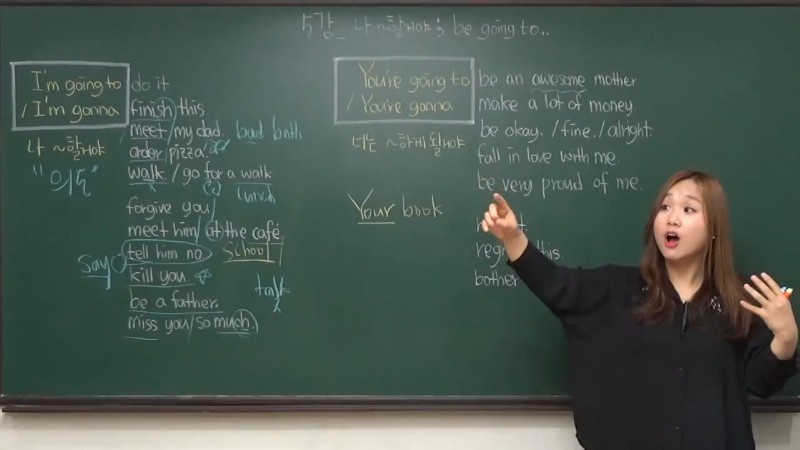 5강_ 나 ~할거야 ; be going to..
I'm going to
/ I'm gonna
나 ~할거야
"의도"
do it
finish this
meet / my dad. bad bath
order pizza.
walk / go for a walk
lunch
forgive you
meet him / at the café.
tell him no. School
say
kill you.
talk
be a father.
miss you / so much.
You're going to
/ You're gonna
너는 ~하게 될거야
Your book
be an awesome mother
make a lot of money.
be okay. / fine. / alright.
fall in love with me.
be very proud of me.
this.
bother